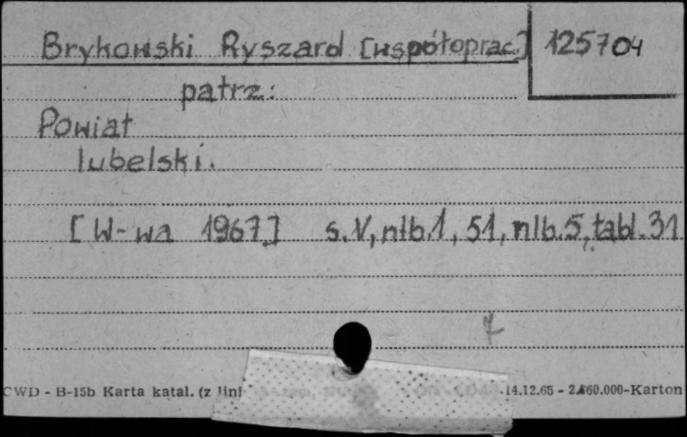 Brykowski Ryszard [współoprac.] 125704
patrz:
Powiat
lubelski.
[W-wa 1967] s.V, nlb.1, 51, nlb.5, tabl.31
7
CWD - B-15b Karta katal. (z lini 14.12.65 - 2.860.000-Karton